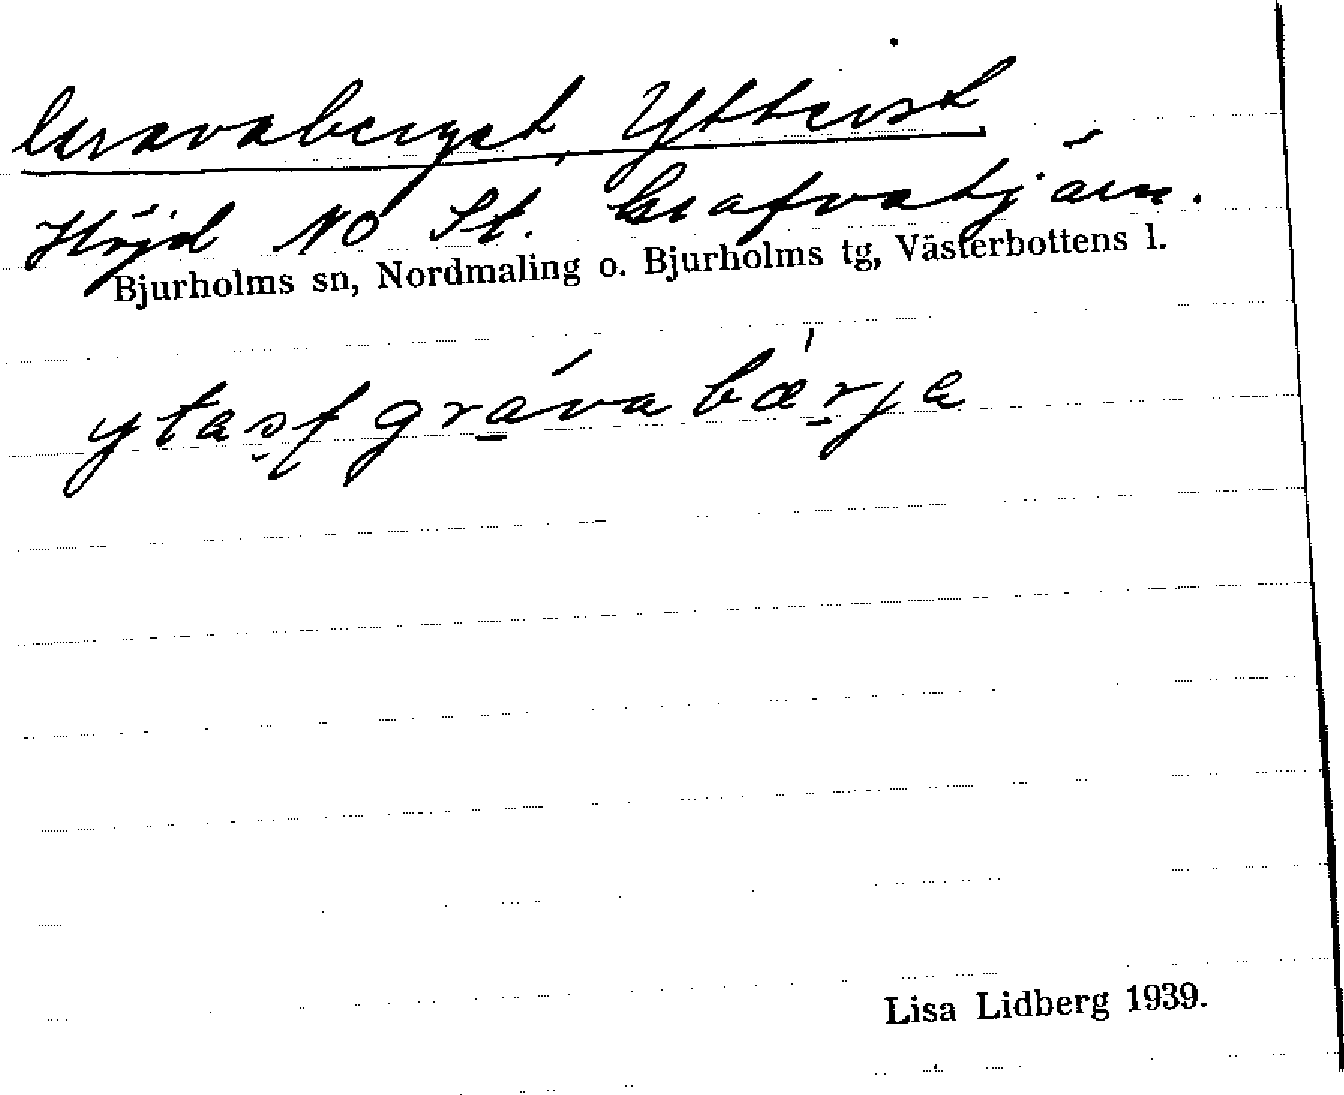 Gravaberget, Ytterst
Höjd NO St. Grafvatjärn.
Bjurholms sn, Nordmaling o. Bjurholms tg, Västerbottens l.
ytasf grávabärja
Lisa Lidberg 1939.